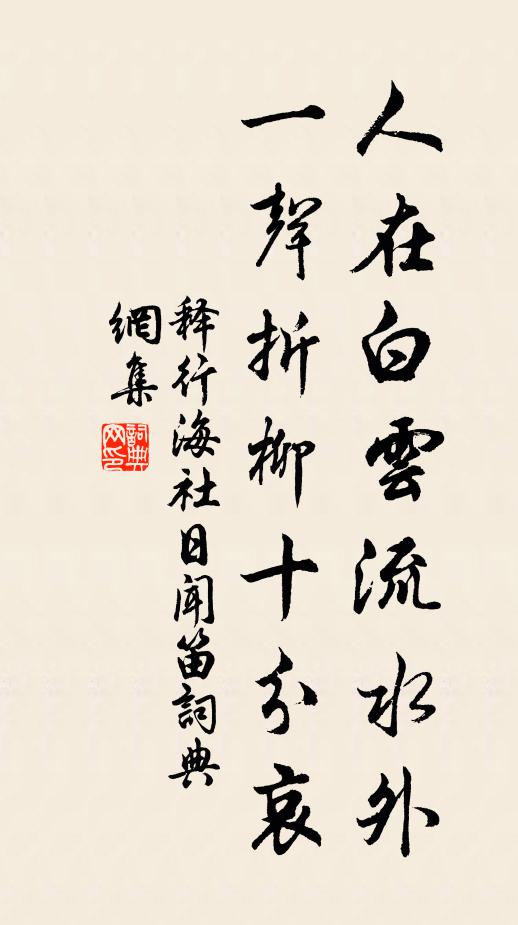 人在白雲流水外
一聲折柳十分哀
释行海社日聞笛詞典
網集
詞典
网印